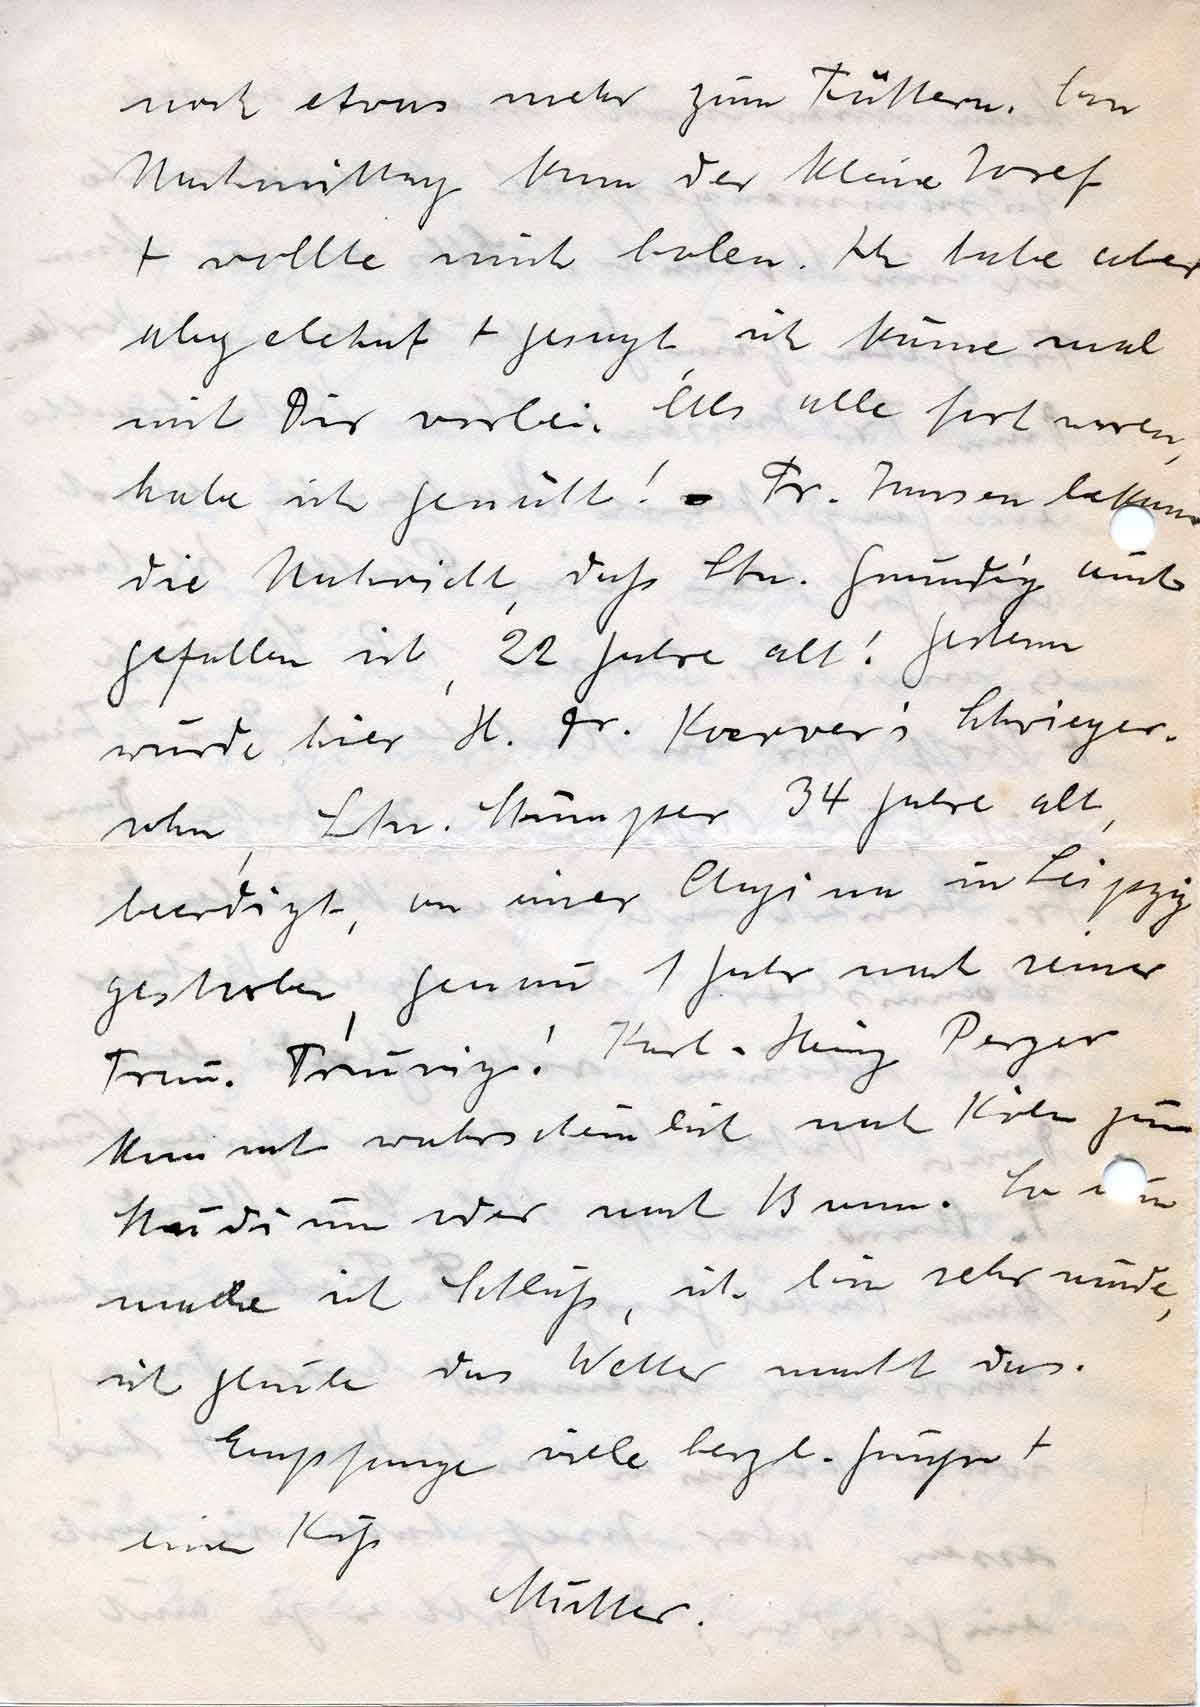 noch etwas mehr zum Füttern. Am
Nachmittag kam der kleine Josef
+ wollte mich holen. Ich habe aber
abgelehnt + gesagt, ich käme mal
mit Dir vorbei. Als alle fort waren,
habe ich genäht! - Fr. Jansen bekam
die Nachricht, daß Ltn. Grundig auch
gefallen ist, 22 Jahre alt! Gestern
wurde hier H. Dr. Koerver's Schwieger-
sohn, Ltn. Stümper 34 Jahre alt,
beerdigt, an einer Angina in Leipzig
gestorben, genau 1 Jahr nach seiner
Frau. Traurig! Karl-Heinz Perger
kommt wahrscheinlich nach Köln zum
Studium oder nach Bonn. So nun
mache ich Schluß, ich bin sehr müde,
ich glaube das Wetter macht das.
Empfange viele herzl. Grüße +
einen Kuß
Mutter.